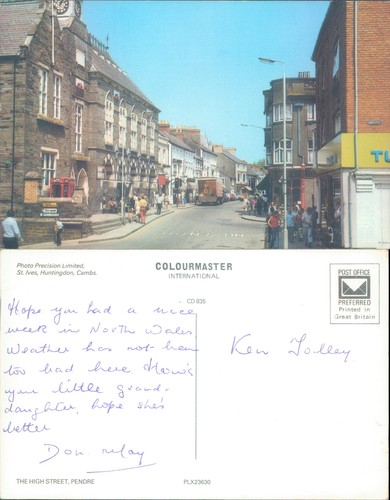 TU
Photo Precision Limited,
St. Ives, Huntingdon, Cambs.
COLOURMASTER
INTERNATIONAL
POST OFFICE
PREFERRED
Printed in
Great Britain
CD 935
Hope you had a nice
week in North Wales
Weather has not been
too bad here How's
your little grand-
daughter, hope she's
better
Don. May
Ken Tolley
THE HIGH STREET, PENDRE
PLX23630